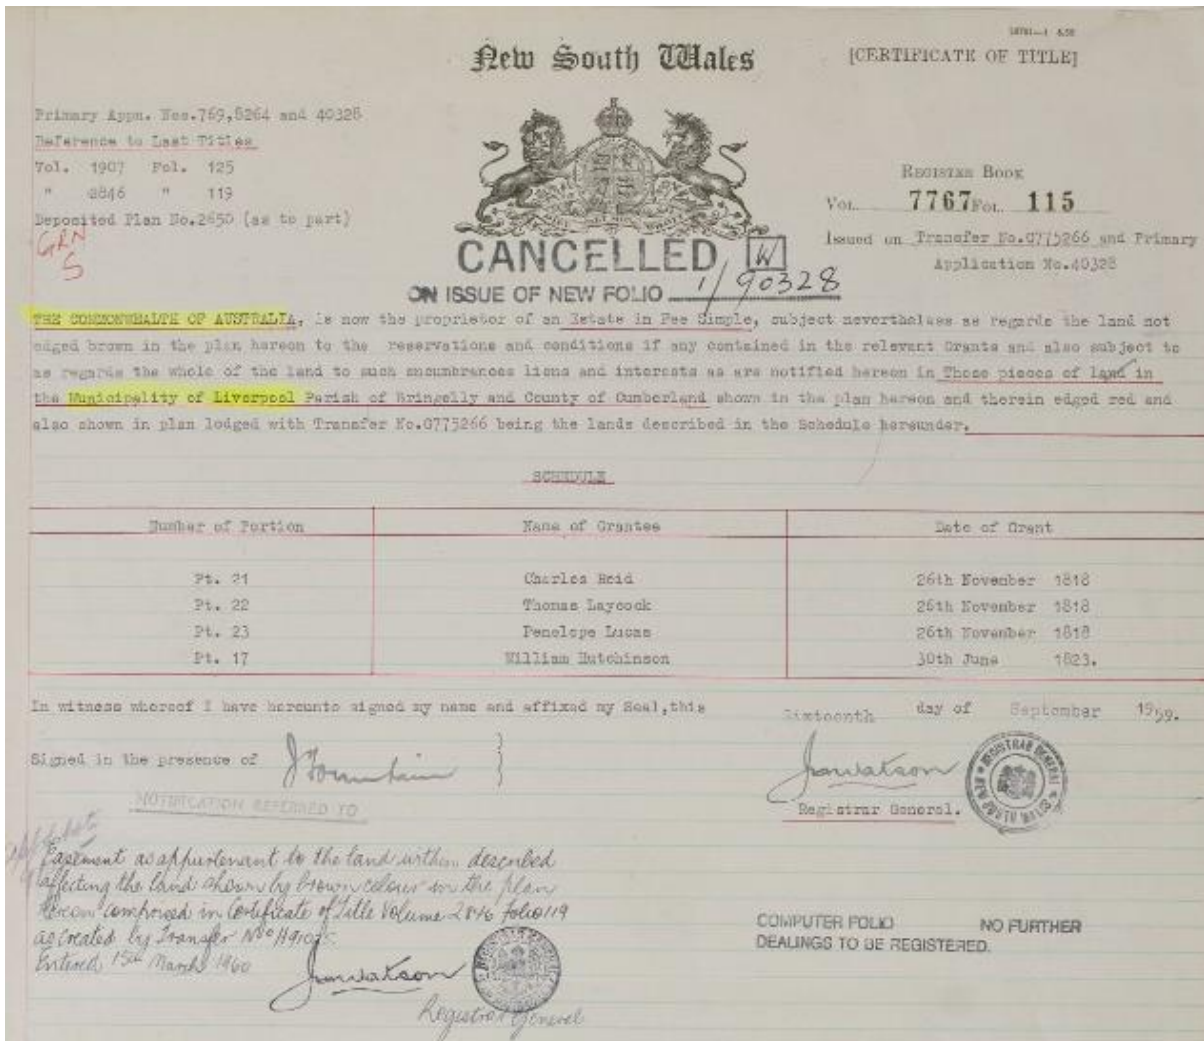 New South Wales
[CERTIFICATE OF TITLE]
Primary Appn. Nos.769,8264 and 40328
Reference to Last Titles
Vol. 1907 Fol. 125
" 2846 " 119
Deposited Plan No.2650 (as to part)
GRN
S
REGISTER BOOK
VOL. 7767 FOL. 115
Issued on Transfer No.G775266 and Primary
Application No.40328
CANCELLED W
ON ISSUE OF NEW FOLIO 1/90328
THE COMMONWEALTH OF AUSTRALIA, is now the proprietor of an Estate in Fee Simple, subject nevertheless as regards the land not
edged brown in the plan hereon to the reservations and conditions if any contained in the relevant Grants and also subject to
as regards the whole of the land to such encumbrances liens and interests as are notified hereon in Those pieces of land in
the Municipality of Liverpool Parish of Bringelly and County of Cumberland shown in the plan hereon and therein edged red and
also shown in plan lodged with Transfer No.G775266 being the lands described in the Schedule hereunder.
SCHEDULE
Number of Portion Name of Grantee Date of Grant
Pt. 21 Charles Reid 26th November 1818
Pt. 22 Thomas Laycock 26th November 1818
Pt. 23 Penelope Lucas 26th November 1818
Pt. 17 William Hutchinson 30th June 1823.
In witness whereof I have hereunto signed my name and affixed my Seal,this Sixteenth day of September 1959.
Signed in the presence of J Fountain
Jawatson
Registrar General.
REGISTRAR GENERAL NEW SOUTH WALES
NOTIFICATION REFERRED TO
Easement as appurtenant to the land within described
affecting the land shown by brown colour in the plan
hereon comprised in Certificate of Title Volume 2846 folio 119
as created by Transfer No
Entered 15th March 1960
Jawatson
Registrar General
COMPUTER FOLIO NO FURTHER
DEALINGS TO BE REGISTERED.